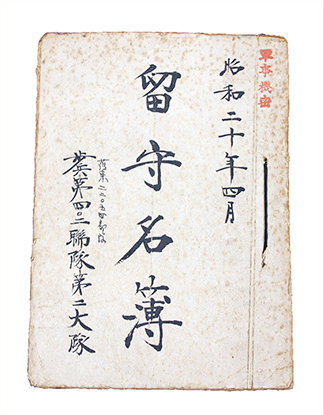 軍事機密
昭和二十年四月
留守名簿
護東二二〇五四部隊
歩兵第四〇二聯隊第二大隊